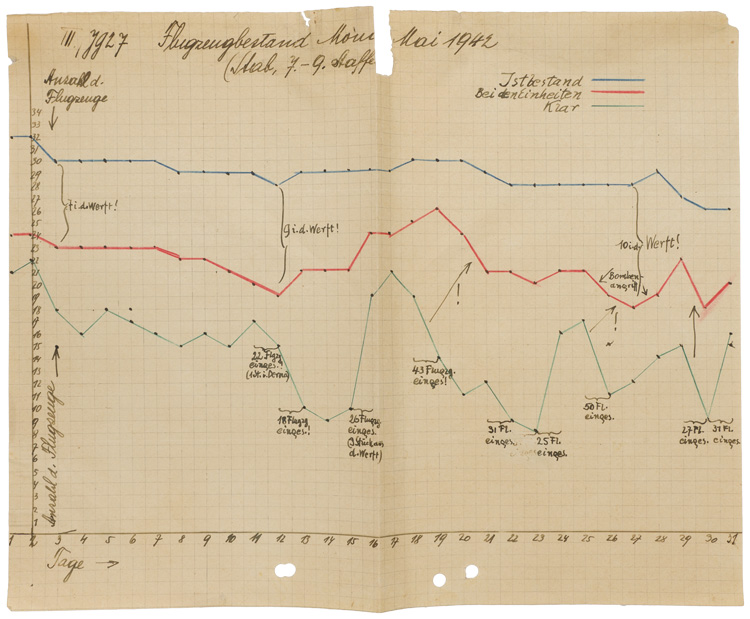 III./JG27 Flugzeugbestand Mai 1942
(Stab, 7.-9. Staffe
Anzahl d.
Flugzeuge
Istbestand
Bei den Einheiten
Klar
34
33
32
31
30
29
28
27
26
25
24
23
22
21
20
19
18
17
16
15
14
13
12
11
10
9
8
7
6
5
4
3
2
1
7 i.d. Werft!
9 i.d. Werft!
10 i.d. Werft!
Bomben-
angriff
!
!
22 Flgzg.
einges.!
18 Flugzg.
einges.!
26 Flugzg.
einges.
(3 Stück aus
d. Werft)
43 Flugzg.
einges!
31 Fl.
einges.
25 Fl.
einges.
50 Fl.
einges.
27 Fl.
einges.
37 Fl.
einges.
Anzahl d. Flugzeuge
1 2 3 4 5 6 7 8 9 10 11 12 13 14 15 16 17 18 19 20 21 22 23 24 25 26 27 28 29 30 31
Tage →